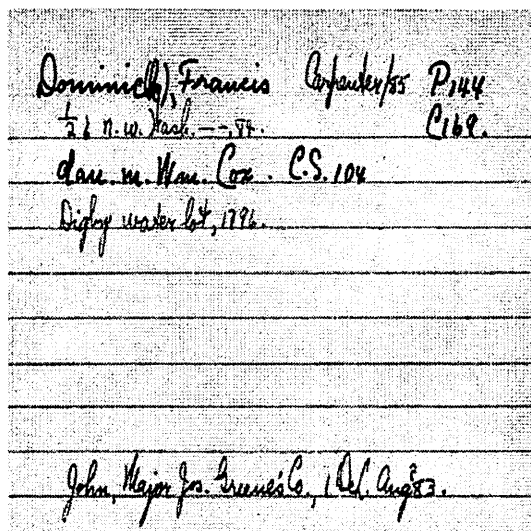 Dominick), Francis Carpenter/85 P,144
½ N.W. Wash. ––,84. C169.
dau. m. Wm. Cox. C.S. 104
Digby water lot, 1796.
John, Major Jos. Greene's Co., 1 Aug 83.